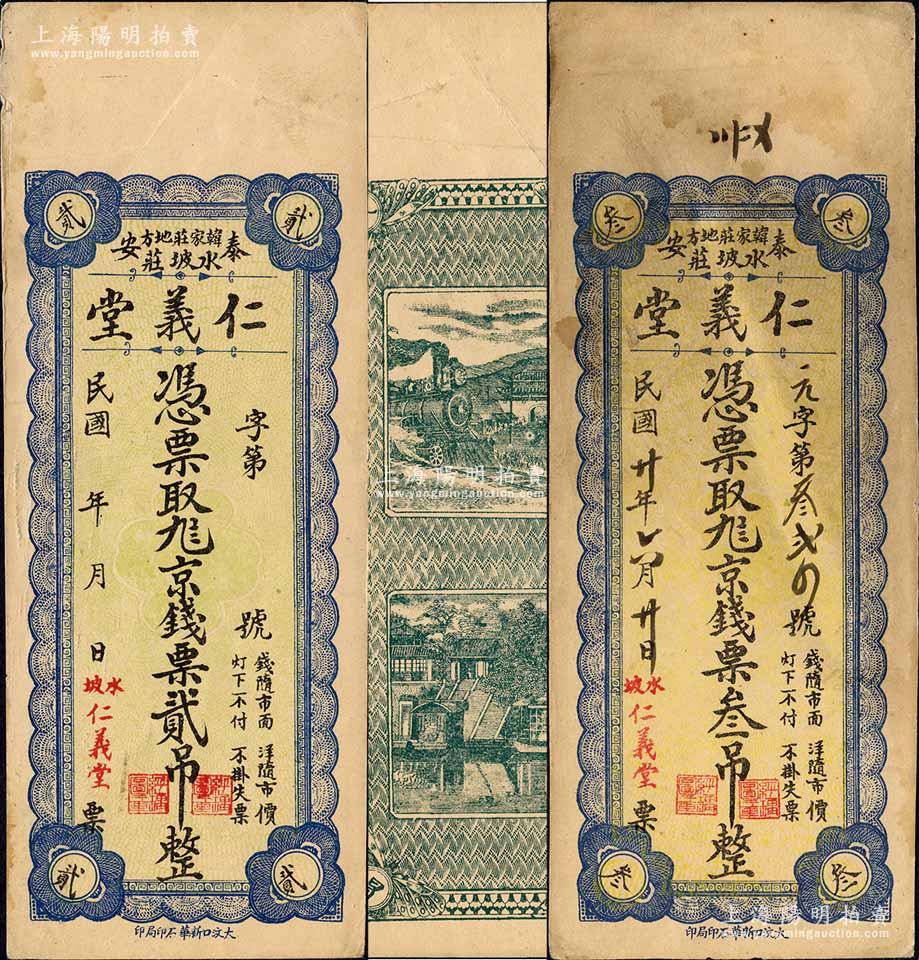 上海陽明拍賣
www.yangmingauction.com
貳
貳
泰韓家莊地方安
水坡莊
仁義堂
字第
號
憑票取九京錢票貳吊整
民國
年
月
日
錢隨市面 洋隨市價
灯下不付 不掛失票
水坡
仁義堂
票
貳
貳
大汶口新華石印局印
上海陽明拍賣
www.yangmingauction.com
叁
叁
泰韓家莊地方安
水坡莊
仁義堂
元字第叁
號
憑票取九京錢票叁吊整
民國廿年
月廿日
錢隨市面 洋隨市價
灯下不付 不掛失票
水坡
仁義堂
票
叁
叁
大汶口新華石印局印
上海陽明拍賣
www.yangmingauction.com